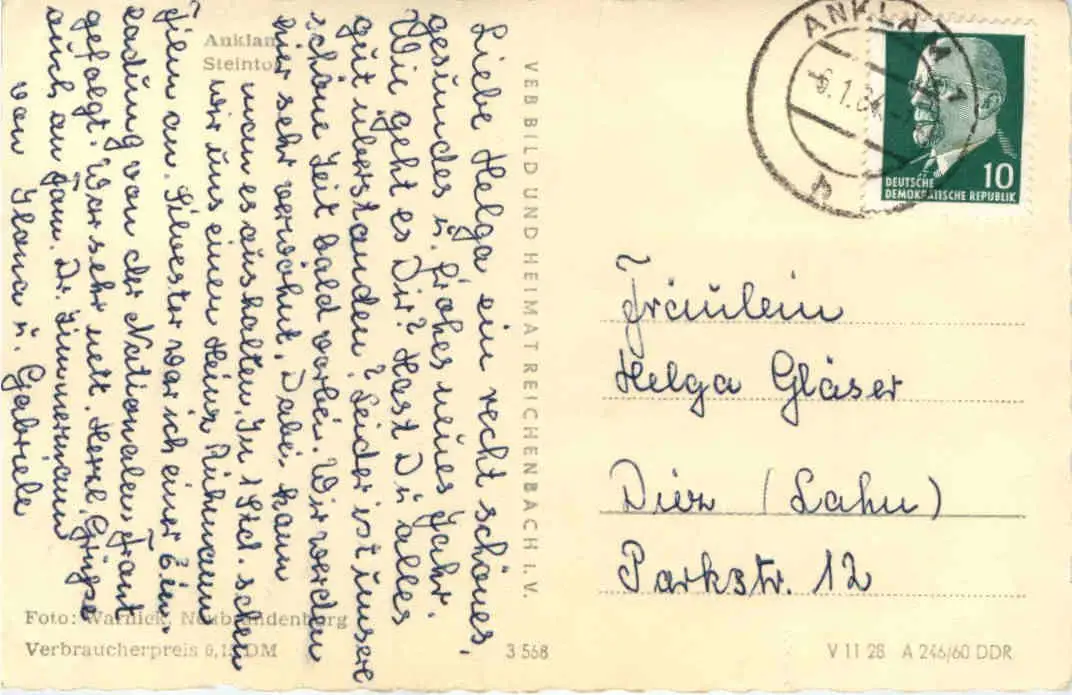 Anklam
Steintor
Liebe Helga ein recht schönes,
gesundes u. frohes neues Jahr.
Wie geht es Dir? Hast Du alles
gut überstanden? Leider ist unsere
schöne Zeit bald vorbei. Wir werden
hier sehr verwöhnt. Dabei kann
man es aushalten. In 1 Std. sehen
wir uns einen Heinz Rühmann
Film an. Silvester war ich einer Ein-
ladung von der Nationalen Front
gefolgt. War sehr nett. Herzl. Grüsse
auch an Fam. Dr. Zimmermann
von Ilona u. Gabriele
Foto: Warnick, Neubrandenburg
Verbraucherpreis 0,15 DM
VEB BILD UND HEIMAT REICHENBACH I. V.
3 568
ANKLAM 1
6.1.64
b
10
DEUTSCHE
DEMOKRATISCHE REPUBLIK
Fräulein
Helga Gläser
Diez (Lahn)
Parkstr. 12
V 11 28 A 246/60 DDR